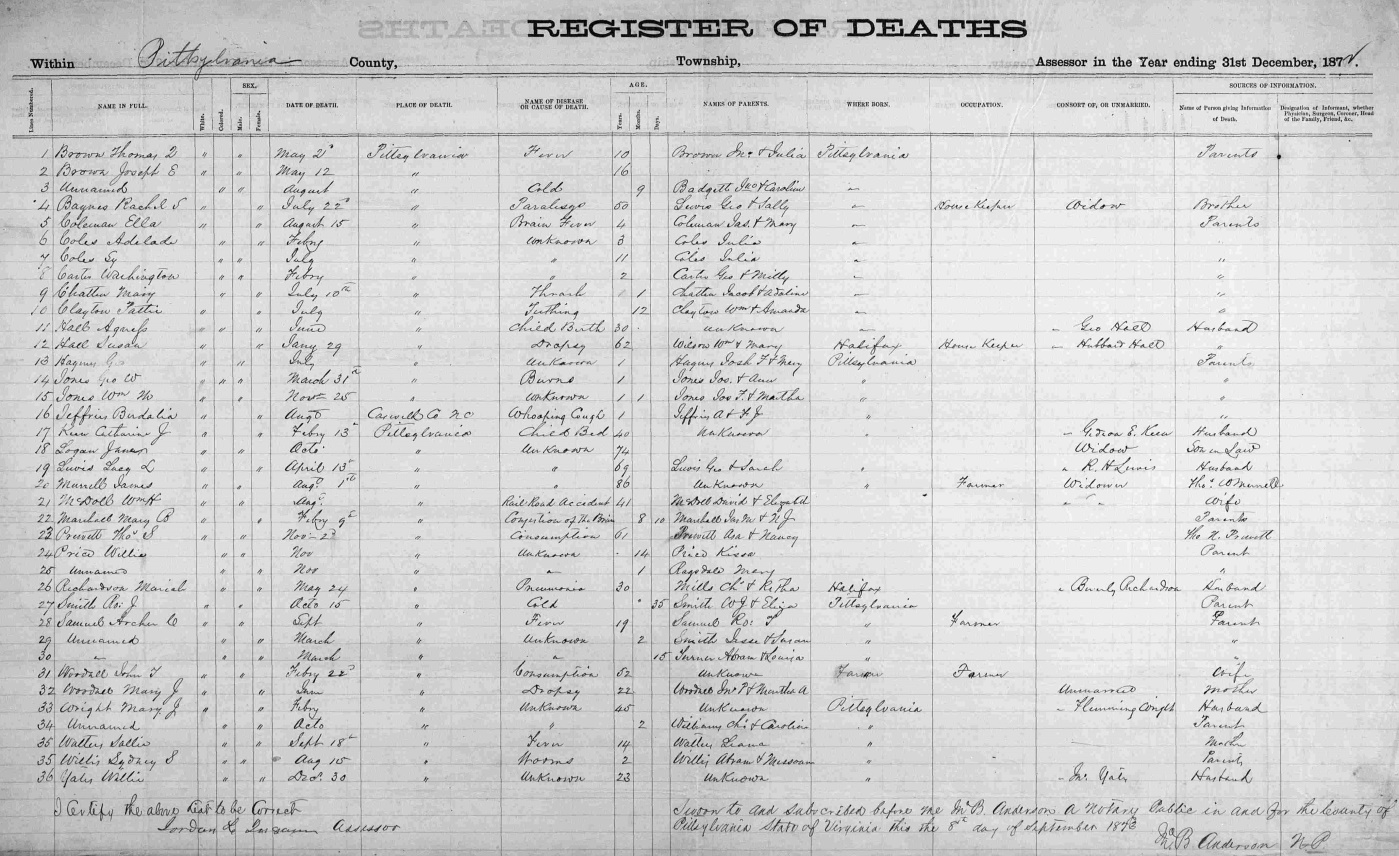 REGISTER OF DEATHS
Within Pittsylvania County, Township, Assessor in the Year ending 31st December, 187
SEX. AGE. SOURCES OF INFORMATION.
Lines Numbered. NAME IN FULL. White. Colored. Male. Female. DATE OF DEATH. PLACE OF DEATH. NAME OF DISEASE OR CAUSE OF DEATH. Years. Months. Days. NAMES OF PARENTS. WHERE BORN. OCCUPATION. CONSORT OF, OR UNMARRIED. Name of Person giving Information of Death. Designation of Informant, whether Physician, Surgeon, Coroner, Head of the Family, Friend, &c.
1 Brown Thomas " " May 2d Pittsylvania Fever 10 Brown Jno & Julia Pittsylvania Parents
2 Brown Joseph E " " May 12 " 16
3 Unnamed " " August " Cold 9 Badgett Jno & Caroline "
4 Baynes Rachel S " " July 22d " Paralisys 60 Lewis Geo & Sally " House Keeper Widow Brother
5 Coleman Ella " " August 15 " Brain Fever 4 Coleman Jas. & Mary " Parents
6 Coles Adelade " " Febry " Unknown 3 Coles Julia "
7 Coles Sy " " July " " 11 Coles Julia " "
8 Carter Washington " " Febry " " 2 Carter Geo & Milly " "
9 Chatten Mary " " July 10th " Thrash 1 Chatten Jacob & Adaline " "
10 Clayton Pattie " " July " Tuthing 12 Clayton Wm & Amanda "
11 Hall Agness " " June " Child Birth 30 Unknown " " Geo Hall Husband
12 Hall Susan " " Jany 29 " Dropsy 62 Wilson Wm & Mary Halifax House Keeper " Hubbard Hall "
13 " " July " Unknown 1 Josh F & Mary Pittsylvania Parents
14 Jones Geo W " " March 31st " Burns 1 Jones Jos. & Ann " "
15 Jones Wm M " " Novr 25 " Unknown 1 1 Jones Jos F. & Martha " "
16 Jeffries Burdalia " " Augt Caswell Co NC Whooping Cough 1 Jeffris A & F J " "
17 Keen Catharine J " " Febry 13th Pittsylvania Child Bed 40 Unknown " " Gideon E. Keen Husband
18 Logan " " Octo " Unknown 74 Widow Son in Law
19 Lewis Lucy L " " April 13th " " 69 Lewis Geo & Sarah " " R. H Lewis Husband
20 Murrell James " " Augt 1st " " 86 Unknown " Farmer Widower Thos. Murrell
21 McDoll Wm H " " Augt " Rail Road Accident 41 McDoll David & Elizabeth " " Wife
22 Marshall Mary B " " Febry 9th " Congestion of the Brain 8 10 Marshall Jas M & N J " Parents
23 Pruvett Thos S " " Nov 2d " Consumption 61 Pruvett Asa & Nancy Thos N. Pruvett
24 Price Willie " " Nov " Unknown 14 Price Kissa Parent
25 Unnamed " " Nov " " 1 Ragsdale Mary "
26 Richardson Mariah " " May 24 " Pneumonia 30 Mills Chs & Retha Halifax " Beverly Richardson Husband
27 Smith Ro: J " " Octo 15 " Cold 35 Smith W J & Eliza Pittsylvania Parent
28 Samuel Archer C " " Sept " Fever 19 Samuel Ro: T " Farmer Parent
29 Unnamed " " March " Unknown 2 Smith Jesse & Susan " "
30 " " " March " " 15 Turner Abram & Louisa
31 Woodall John T " " Febry 22d " Consumption 52 Unknown Farmer Farmer Wife
32 Woodall Mary J " " June " Dropsy 22 Woodall Jno P & Martha A Unmarried Mother
33 Wright Mary J " " Febry " Unknown 45 Unknown Pittsylvania " Flumming Wright Husband
34 Unnamed " " Octo " " 2 Williams Chs & Caroline " Parent
35 Walters Sallie " " Sept 18th " Fever 14 Walters Leana " Mother
35 Willis Sydney S " " Aug 15 " Worms 2 Willis Abram & Missouri " Parents
36 Yates Willie " " Decr. 30 " Unknown 23 Unknown " " Jno Yates Husband
I Certify the above List to be Correct
Jordan L Assessor
Sworn to and subscribed before me Jno B. Anderson A Notary Public in and for the County of
Pittsylvania State of Virginia this the 8th day of September 1873
Jno. B Anderson N.P.